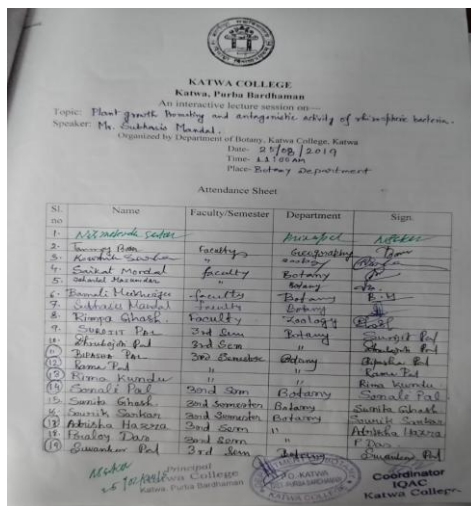 KATWA COLLEGE
Katwa, Purba Bardhaman
An interactive lecture session on—
Topic: Plant growth Promoting and antagonistic activity of rhizospheric bacteria.
Speaker: Mr. Subhasis Mandal.
Organized by Department of Botany, Katwa College, Katwa
Date- 25/08/2019
Time- 11:00AM
Place- Botany Department
Attendance Sheet
Sl. no Name Faculty/Semester Department Sign.
1.
2. Faculty Geography
3. "
4. Saikat Mondal faculty Botany
5. Botany
6. Barnali Mukherjee faculty Botany B.M
7. Subhasis Mandal Faculty Botany
8. Rimpa Ghosh. Faculty Zoology
9. Surojit Pal 3rd Sem Botany Surojit Pal
10. Pal 3rd Sem " Pal
11. Bipasha Pal 3rd Semester Botany Bipasha Pal
12. Rama Pal " " Rama Pal
13. Rima Kundu " " Rima Kundu
14. Sonali Pal 3rd Sem Botany Sonali Pal
15. Smrita Ghosh. 3rd Semester Botany Smrita Ghosh.
16. Sourik Sarkar 3rd Semester Botany Sourik Sarkar
17. Adrisha Hazra 3rd Sem " Adrisha Hazra
18. Pralay Das 3rd Sem " P. Das
19. Suvankar Pal 3rd Sem Botany Suvankar Pal
Principal
Katwa College
Katwa, Purba Bardhaman
DEPARTMENT OF BOTANY
P.O.-KATWA
DIST. PURBA BARDHAMAN
KATWA COLLEGE
Coordinator
IQAC
Katwa College